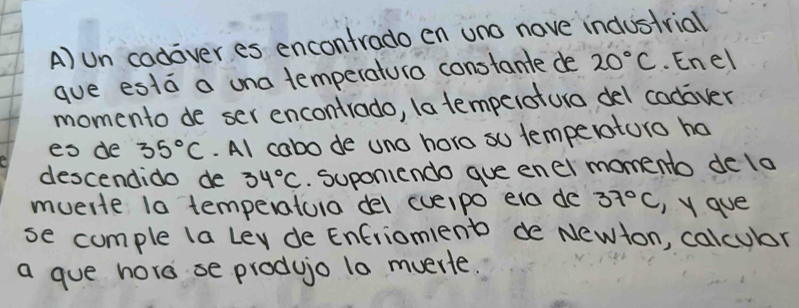 A) Un cadáver es encontrado en una nave industrial
que está a una temperatura constante de 20°C. En el
momento de ser encontrado, la temperatura del cadáver
es de 35°C. Al cabo de una hora su temperatura ha
descendido de 34°C. Suponiendo que en el momento de la
muerte la temperatura del cuerpo era de 37°C, y que
se cumple la Ley de Enfriamiento de Newton, calcular
a que hora se produjo la muerte.